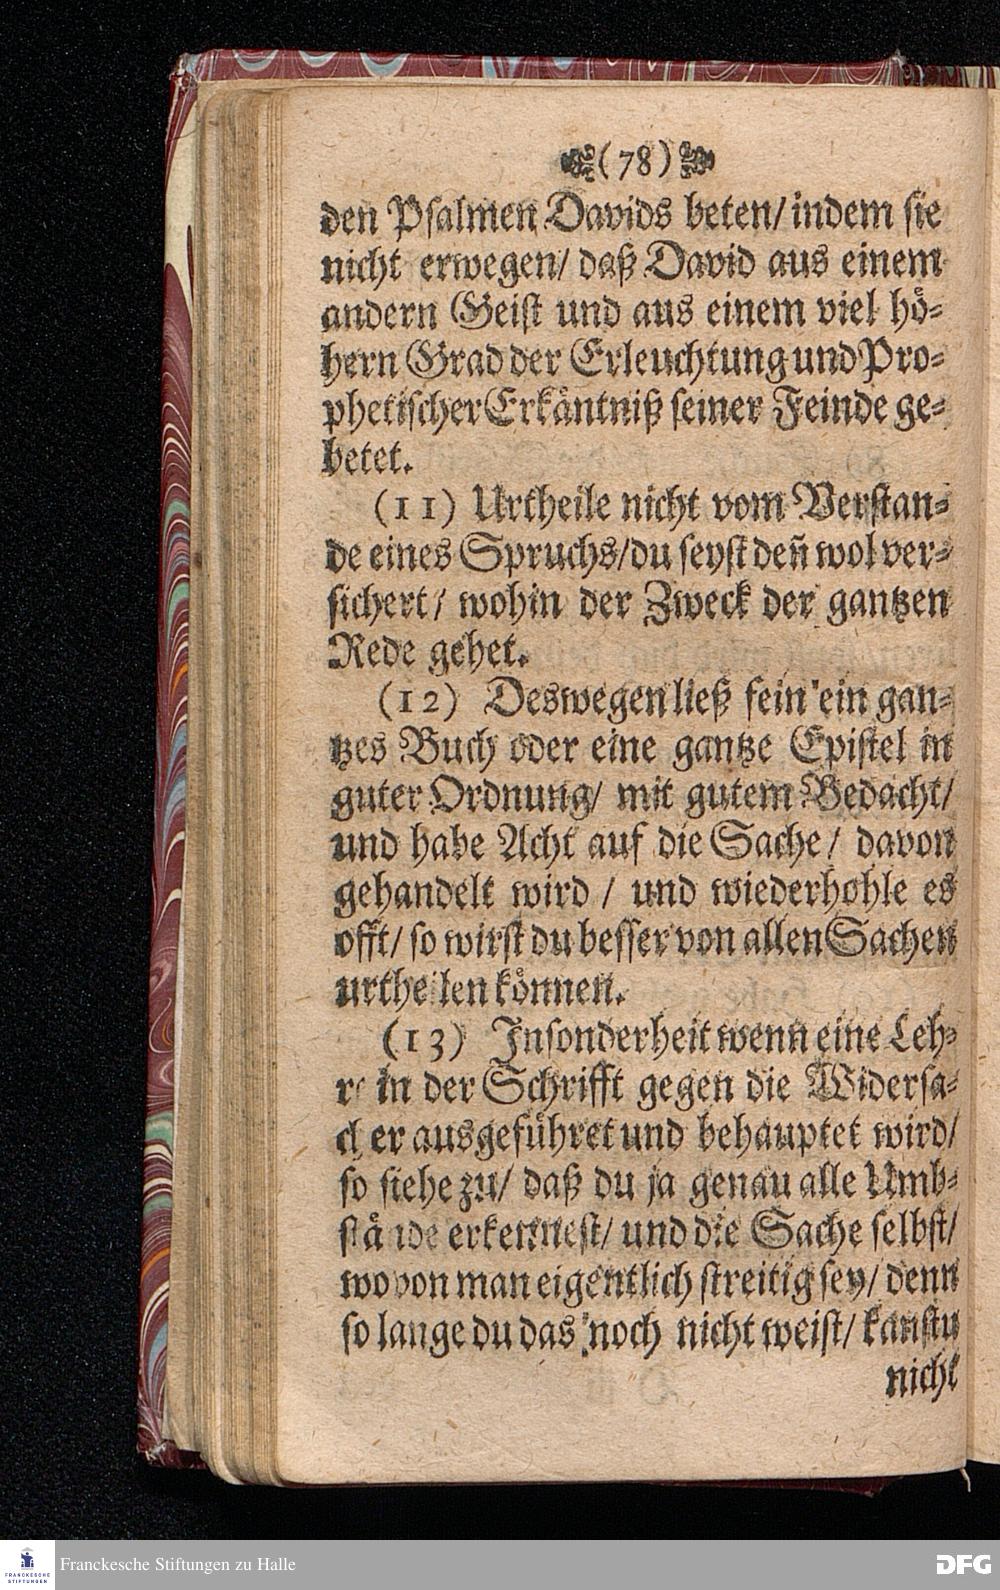 (78)
den Psalmen Davids beten/ indem sie
nicht erwegen/ daß David aus einem
andern Geist und aus einem viel hö-
hern Grad der Erleuchtung und Pro-
phetischer Erkäntniß seiner Feinde ge-
betet.
(11) Urtheile nicht vom Verstan-
de eines Spruchs/ du seyst deñ wol ver-
sichert/ wohin der Zweck der gantzen
Rede gehet.
(12) Deswegen ließ fein ein gan-
tzes Buch oder eine gantze Epistel in
guter Ordnung/ mit gutem Bedacht/
und habe Acht auf die Sache/ davon
gehandelt wird / und wiederhohle es
offt/ so wirst du besser von allen Sachen
urtheilen können.
(13) Insonderheit wenn eine Leh-
re in der Schrifft gegen die Widersa-
cher ausgeführet und behauptet wird/
so siehe zu/ daß du ja genau alle Umb-
stände erkennest/ und die Sache selbst/
wovon man eigentlich streitig sey/ denn
so lange du das noch nicht weist/ kanstu
nicht
Franckesche Stiftungen zu Halle
FRANCKESCHE
STIFTUNGEN
DFG